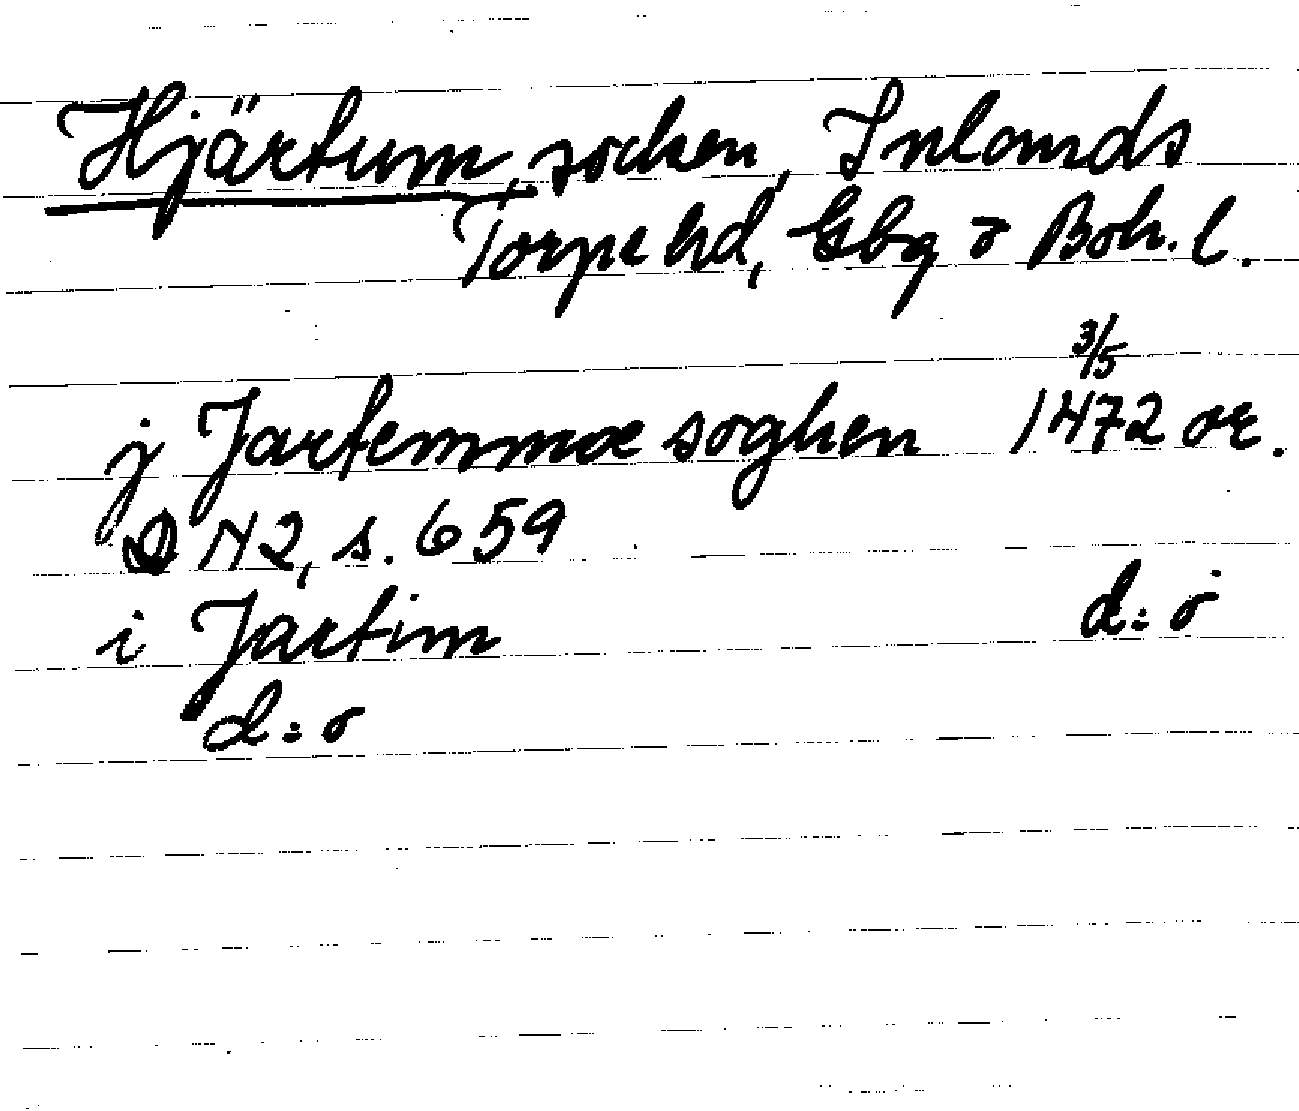 Hjärtum, socken, Inlands
Torpe hd, Gbg o Boh. l.
3/5
j Jartemmæ soghen 1472 or.
DN 2, s. 659
i Jartim d:o
d:o